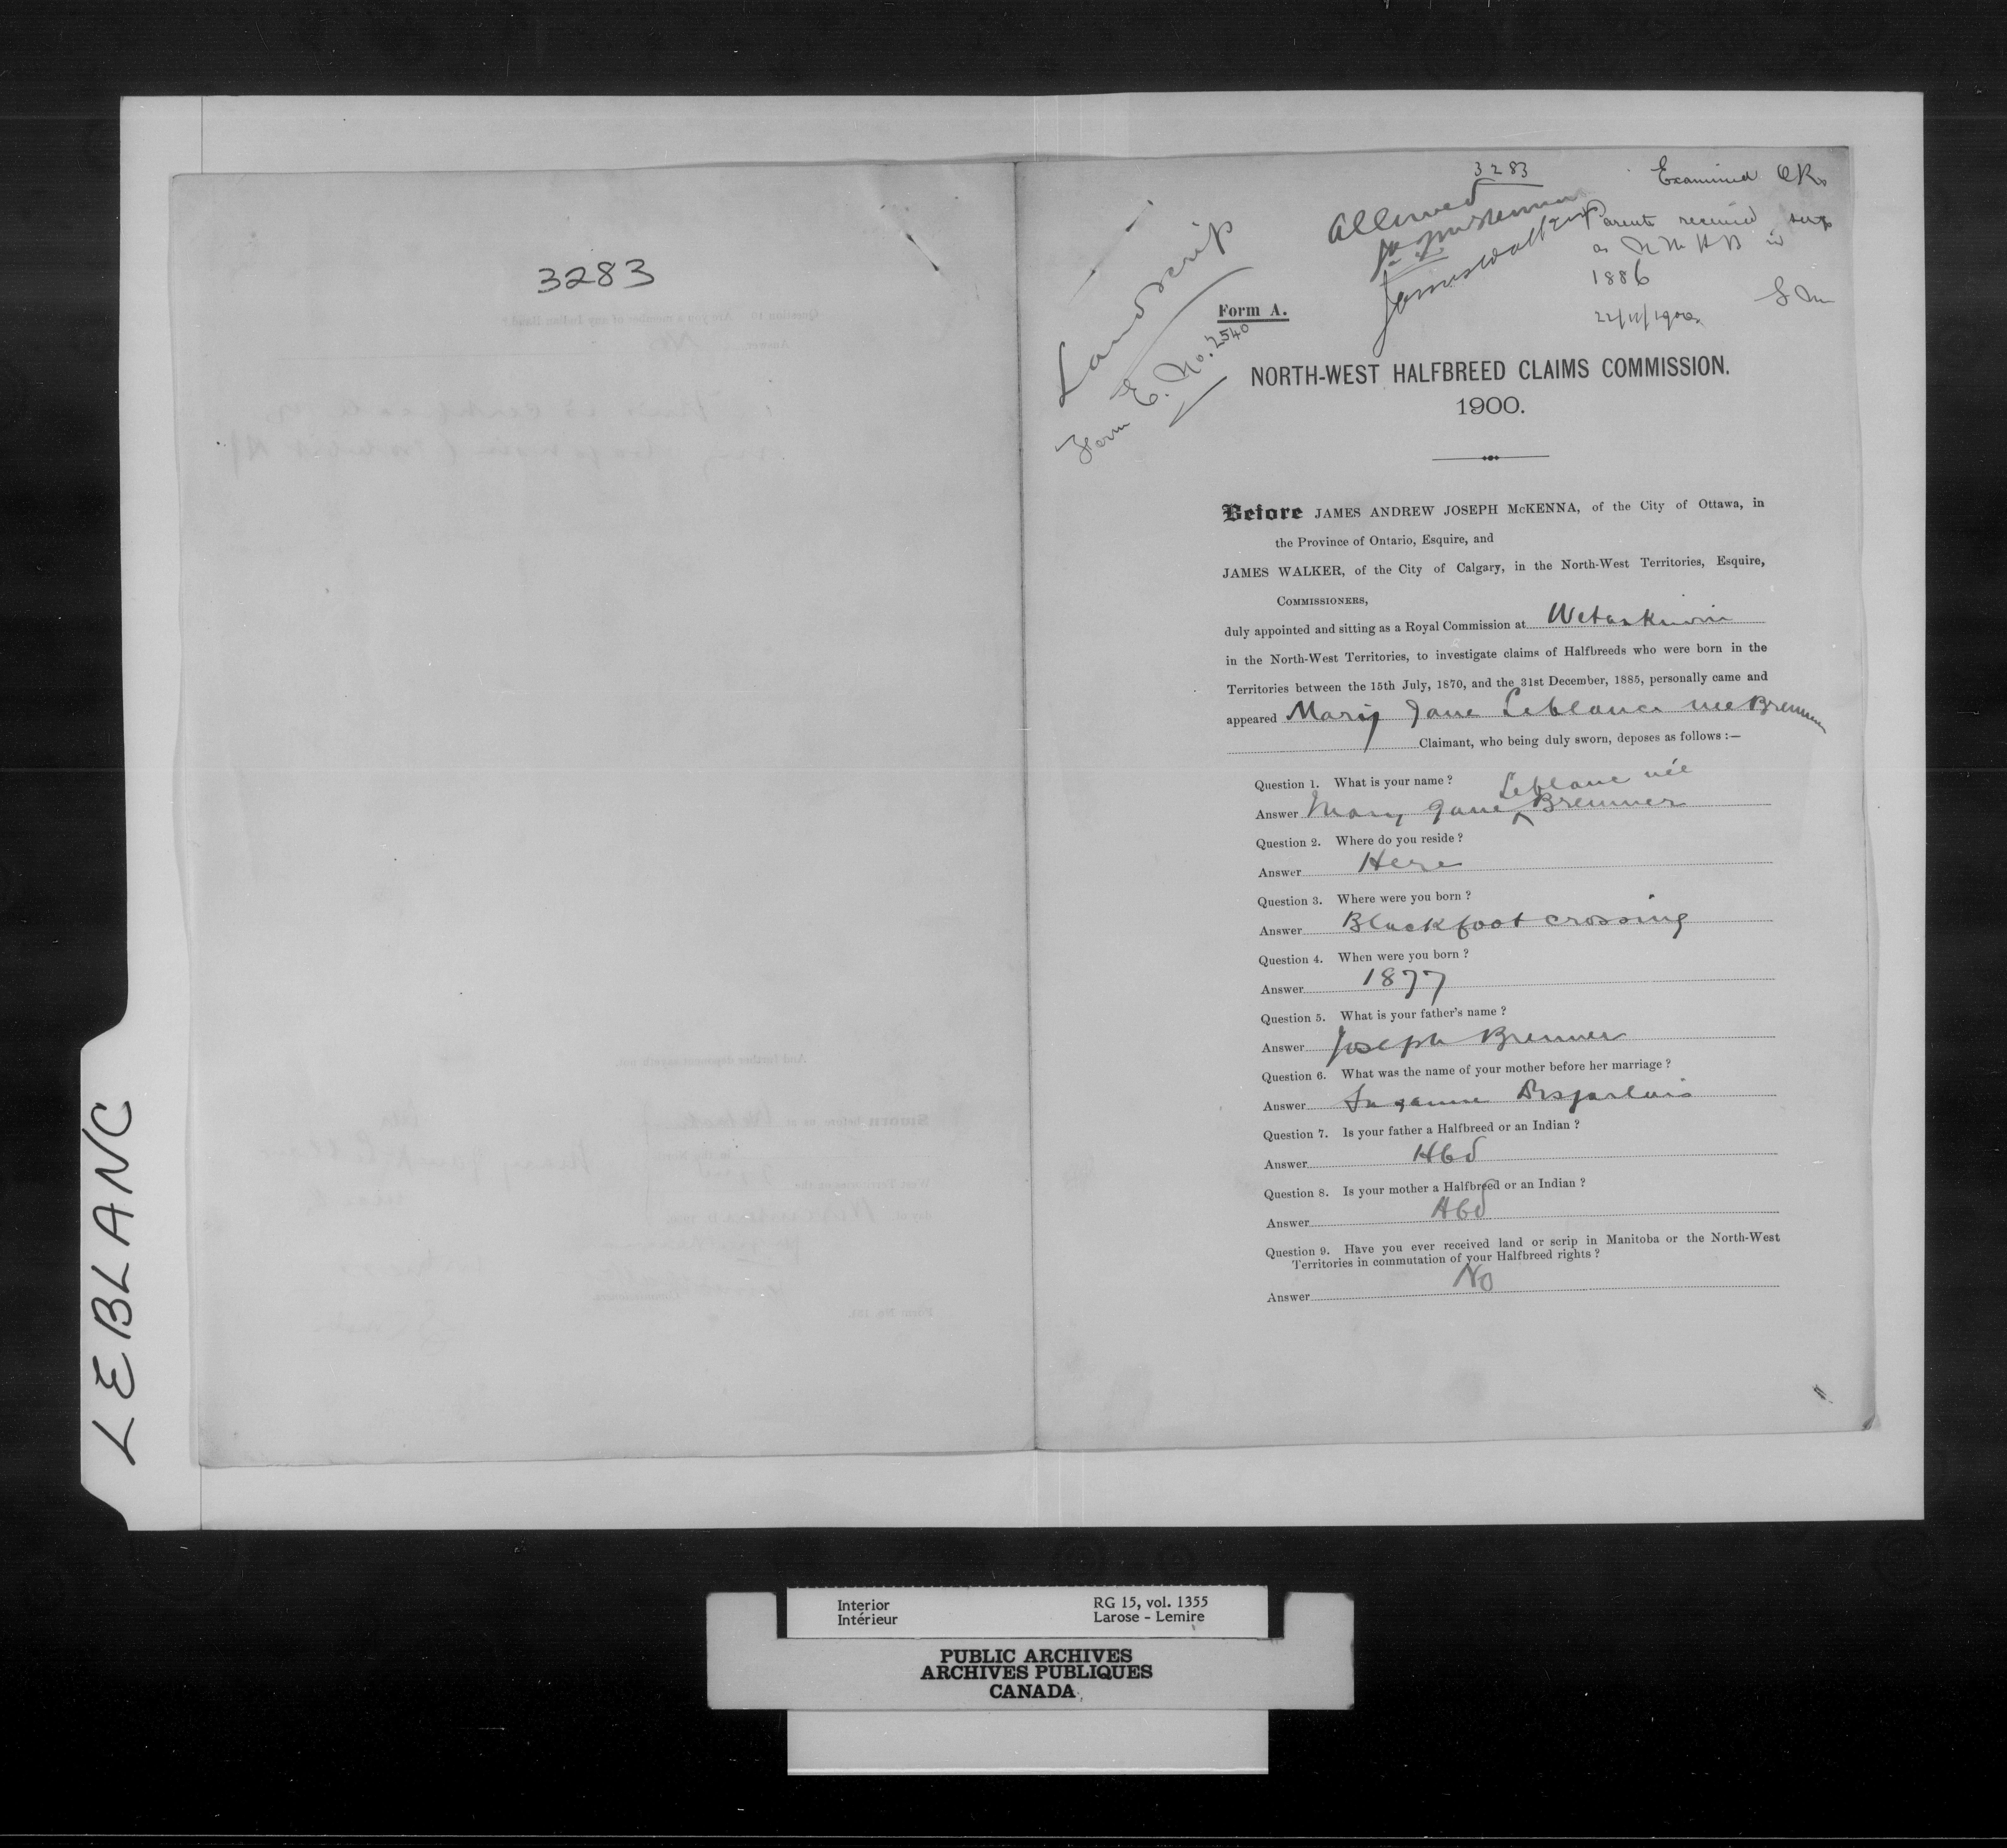 LEBLANC
3283
3283
Examined OK
Allowed
Parents received scrip
as N W H B in
1886
22/11/1900
Land scrip
Form E. No. 2540
James Walker
Form A.
NORTH-WEST HALFBREED CLAIMS COMMISSION.
1900.
Before JAMES ANDREW JOSEPH McKENNA, of the City of Ottawa, in
the Province of Ontario, Esquire, and
JAMES WALKER, of the City of Calgary, in the North-West Territories, Esquire,
COMMISSIONERS,
duly appointed and sitting as a Royal Commission at Wetaskiwin
in the North-West Territories, to investigate claims of Halfbreeds who were born in the
Territories between the 15th July, 1870, and the 31st December, 1885, personally came and
appeared Mary Jane Leblanc nee Bremner
Claimant, who being duly sworn, deposes as follows :—
Question 1. What is your name ?
Leblanc née
Answer Mary Jane Bremner
Question 2. Where do you reside ?
Answer Here
Question 3. Where were you born ?
Answer Blackfoot crossing
Question 4. When were you born ?
Answer 1877
Question 5. What is your father's name ?
Answer Joseph Bremner
Question 6. What was the name of your mother before her marriage ?
Answer Suzanne Desjarlais
Question 7. Is your father a Halfbreed or an Indian ?
Answer Hbd
Question 8. Is your mother a Halfbreed or an Indian ?
Answer Hbd
Question 9. Have you ever received land or scrip in Manitoba or the North-West
Territories in commutation of your Halfbreed rights ?
Answer No
Interior
Intérieur
RG 15, vol. 1355
Larose - Lemire
PUBLIC ARCHIVES
ARCHIVES PUBLIQUES
CANADA